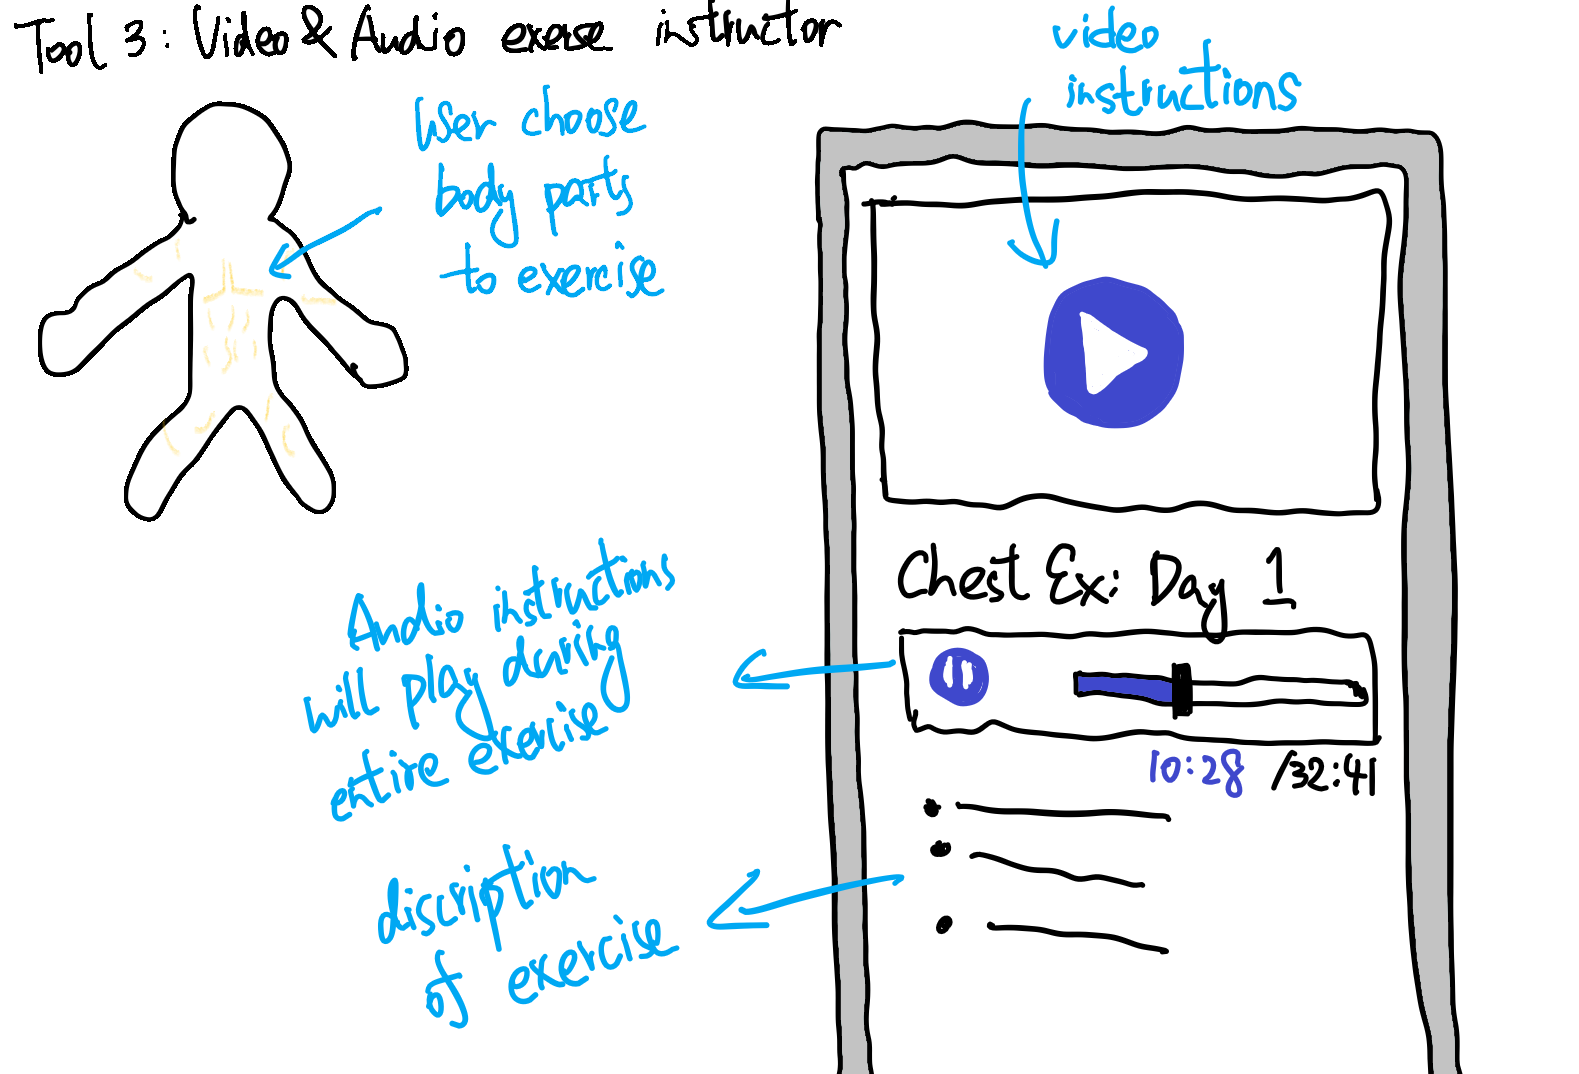 Tool 3: Video & Audio exerse instructor
User choose
body parts
to exercise
video
instructions
Chest Ex: Day 1
10:28 /32:41
Audio instructions
will play during
entire exercise
discription
of exercise